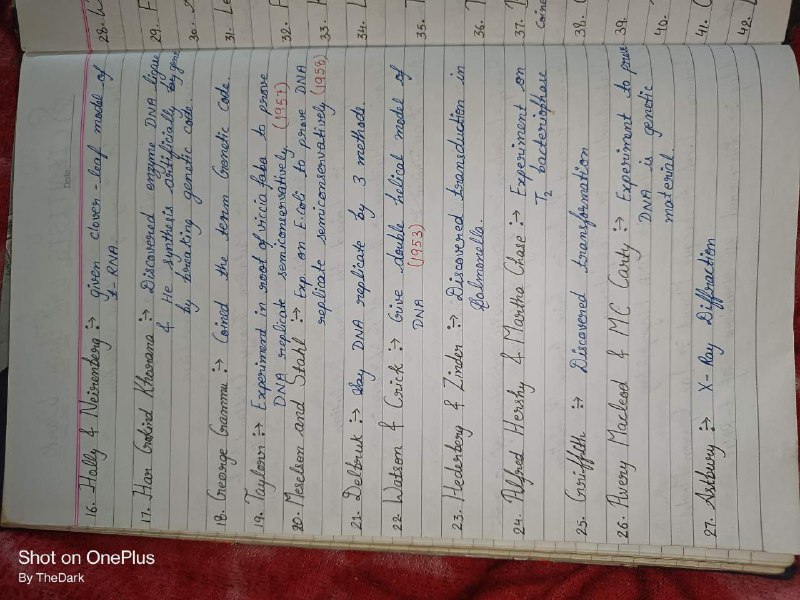 16. Holly & Neirenberg :→ given clover-leaf model of
t-RNA.
17. Har Gobind Khorana :→ Discovered enzyme DNA ligase
& He synthesis artificially by gene
by breaking genetic code.
18. George Gammu :→ Coined the term Genetic Code.
19. Taylorr :→ Experiment in root of viccia faba to prove
DNA replicate semiconservatively. (1957)
20. Meselson and Stahl :→ Exp. on E.coli to prove DNA
replicate semiconservatively (1958)
21. Delbruk :→ Say DNA replicate by 3 methods.
22. Watson & Crick :→ Give double helical model of
DNA (1953)
23. Hederberg & Zinder :→ Discovered transduction in
Salmonella.
24. Alfred Hershy & Martha Chase :→ Experiment on
T2 bacteriophase
25. Griffith :→ Discovered transformation
26. Avery Macleod & MC Carty :→ Experiment to prove
DNA is genetic
material.
27. Astbury :→ X-Ray Diffraction
28.
29.
30.
31.
32.
33.
34.
35.
36.
37.
Coine
38.
39.
40.
41.
42.
Date
Shot on OnePlus
By TheDark